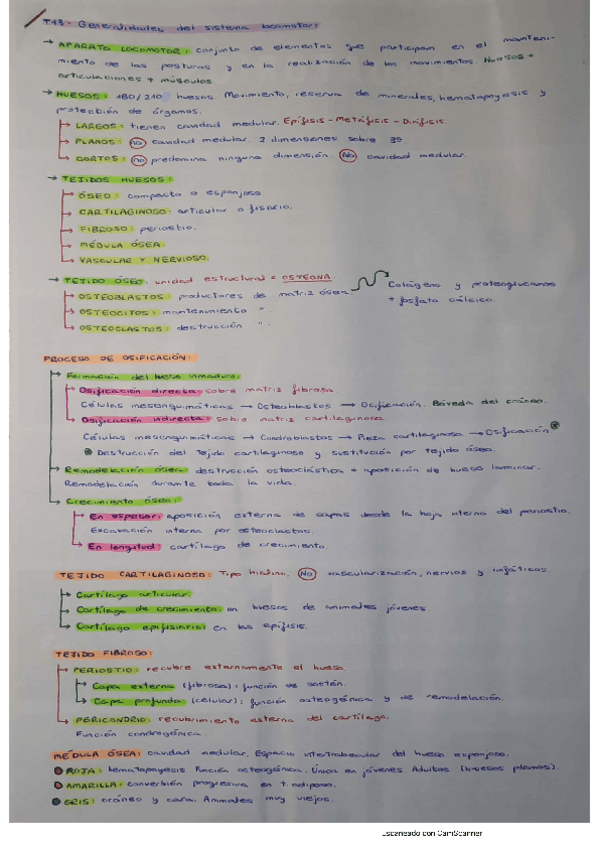 T13- Generalidades del sistema locomotor:
→ APARATO LOCOMOTOR: conjunto de elementos que participan en el manteni-
miento de las posturas y en la realización de los movimientos. Huesos +
articulaciones + músculos
→ HUESOS: 180/210 huesos. Movimiento, reserva de minerales, hematopoyesis y
protección de órganos.
→ LARGOS: tienen cavidad medular. Epífisis - Metáfisis - Diáfisis.
→ PLANOS: no cavidad medular. 2 dimensiones sobre 3ª
→ CORTOS: no predomina ninguna dimensión. No cavidad medular.
→ TEJIDOS HUESOS:
→ ÓSEO: compacto o esponjoso
→ CARTILAGINOSO: articular o fisario.
→ FIBROSO: periostio.
→ MÉDULA ÓSEA.
→ VASCULAR Y NERVIOSO.
→ TEJIDO ÓSEO: unidad estructural = OSTEONA.
→ OSTEOBLASTOS: productores de matriz ósea → Colágeno y proteoglucanos
+ fosfato cálcico.
→ OSTEOCITOS: mantenimiento "
→ OSTEOCLASTOS: destrucción "
PROCESO DE OSIFICACIÓN:
→ Formación del hueso inmaduro:
→ Osificación directa: sobre matriz fibrosa.
Células mesenquimáticas → Osteoblastos → Osificación. Bóveda del cráneo.
→ Osificación indirecta: sobre matriz cartilaginosa
Células mesenquimáticas → Condroblastos → Pieza cartilaginosa → Osificación*
* Destrucción del tejido cartilaginoso y sustitución por tejido óseo.
→ Remodelación ósea: destrucción osteoclástica + aposición de hueso laminar.
Remodelación durante toda la vida.
→ Crecimiento óseo:
→ En espesor: aposición externa de capas desde la hoja interna del periostio.
Excavación interna por osteoclastos.
→ En longitud: cartílago de crecimiento.
TEJIDO CARTILAGINOSO: Tipo hialino. No vascularización, nervios y linfáticos
→ Cartílago articular.
→ Cartílago de crecimiento: en huesos de animales jóvenes
→ Cartílago epifisiario: en las epífisis.
TEJIDO FIBROSO:
→ PERIOSTIO: recubre externamente el hueso.
→ Capa externa (fibrosa): función de sostén.
→ Capa profunda (celular): función osteogénica y de remodelación.
→ PERICONDRIO: recubrimiento externo del cartílago.
Función condrogénica.
MÉDULA ÓSEA: cavidad medular. Espacio intertrabecular del hueso esponjoso.
ROJA: hematopoyesis. Función osteogénica. Única en jóvenes. Adultos (huesos planos).
AMARILLA: conversión progresiva en t. adiposo.
GRIS: cráneo y cara. Animales muy viejos.
Escaneado con CamScanner